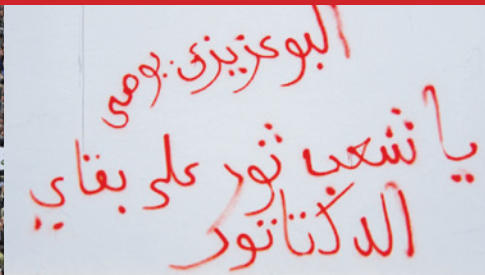 البوعزيزي يوصي
يا شعب ثور على بقاي
الدكتاتور